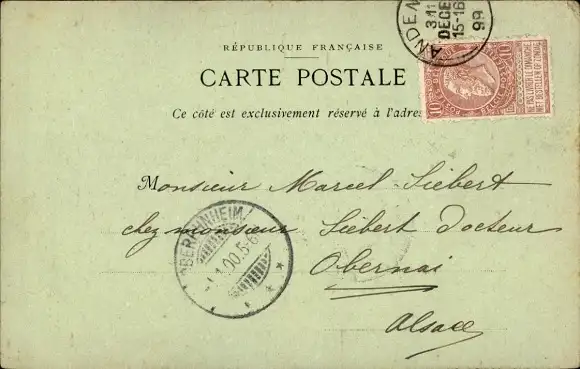 ANDEN
31
DECE
15-16
99
10 10
NE PAS LIVRER LE DIMANCHE
NIET BESTELLEN OP ZONDAG
RÉPUBLIQUE FRANÇAISE
CARTE POSTALE
Ce côté est exclusivement réservé à l'adres
Monsieur Marcel Siébert
chez monsieur Siébert Docteur
OBEREHNHEIM
1.1.00.5-6
Obernai
Alsace